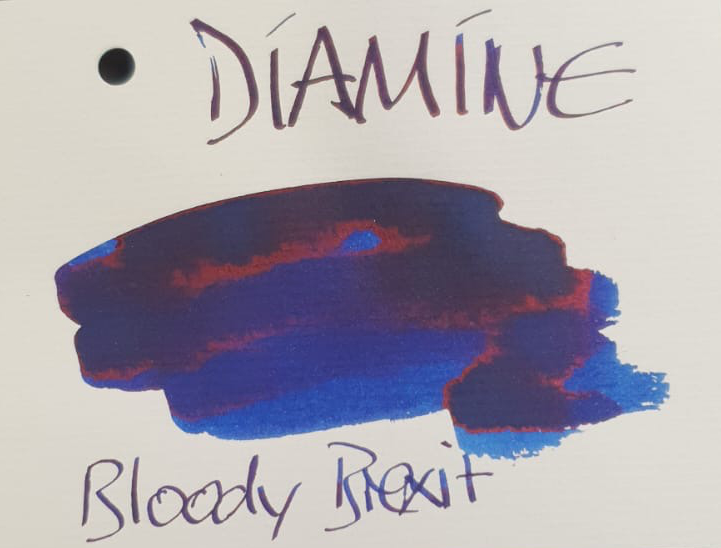 DiAMiNE
Bloody Brexit